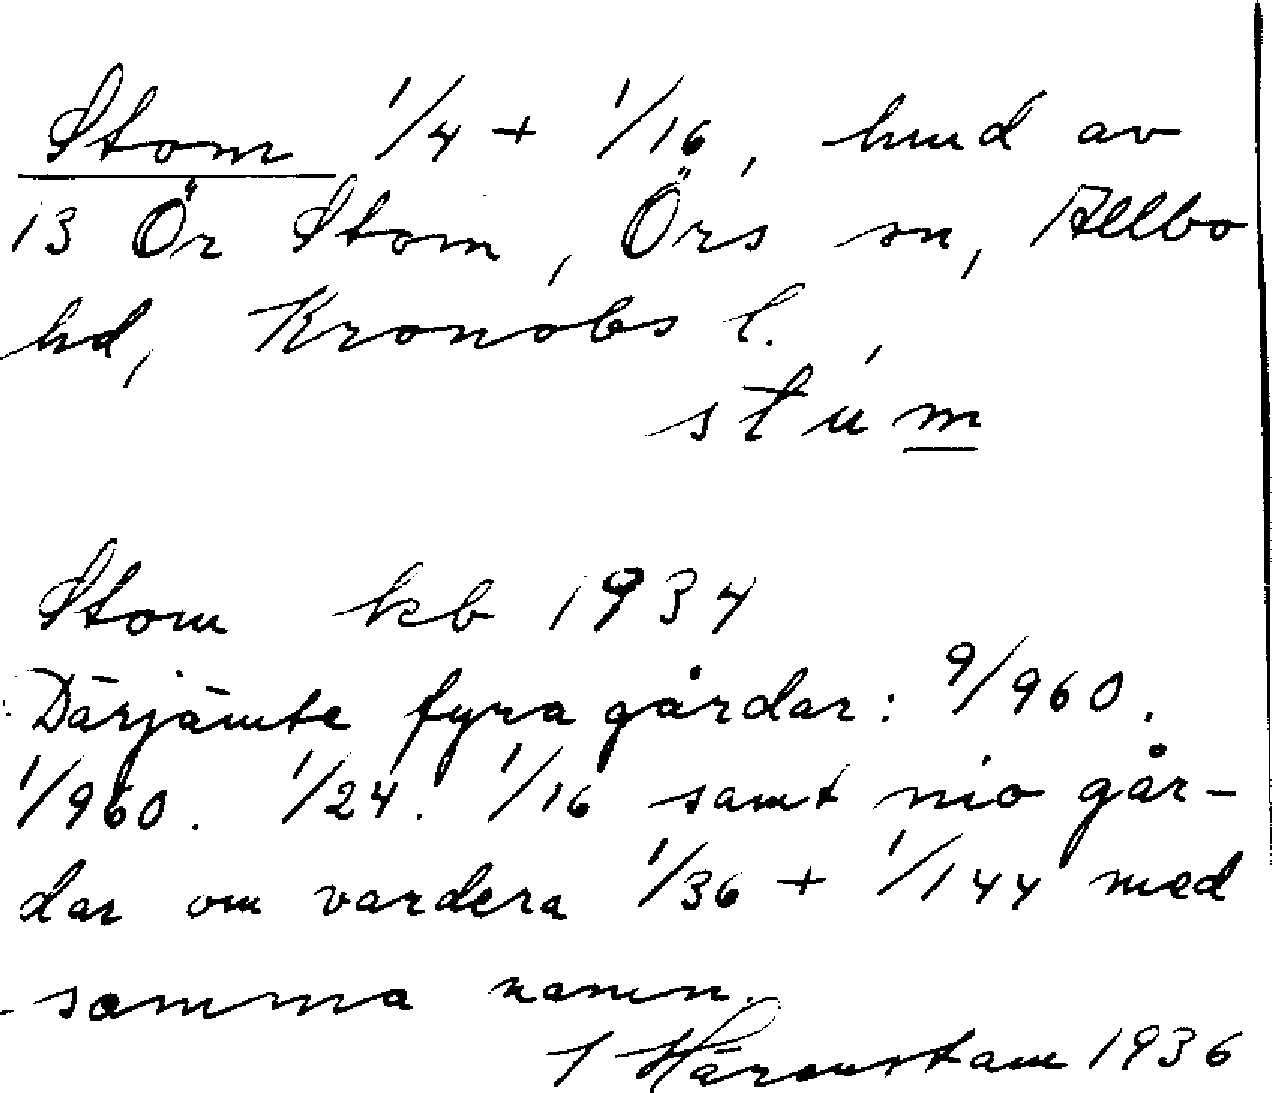 Stom 1/4 + 1/16, hmd av
13 Ör Stom, Örs sn, Allbo
hd, Kronobs l.
stúm
Stom kb 1934
Därjämte fyra gårdar: 9/960.
1/960. 1/24. 1/16 samt nio går-
dar om vardera 1/36 + 1/144 med
samma namn.
Härenstam 1936